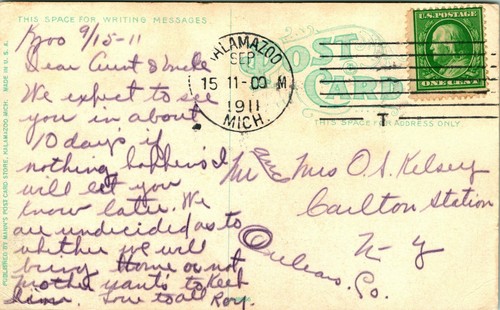 THIS SPACE FOR WRITING MESSAGES.
Kzoo 9/15-11
Dear Aunt & Uncle
We expect to see
you in about
10 days if
nothing happens. I
will let you
know later. We
are undecided as to
whether we will
bring Home or not
Mother wants to Keep
Love to all Roy.
PUBLISHED BY MANN'S POST CARD STORE, KALAMAZOO MICH. MADE IN U.S.A.
KALAMAZOO
SEP
15 11-00 M
1911
MICH.
POST
CARD
THIS SPACE FOR ADDRESS ONLY
U.S. POSTAGE
ONE CENT
T
Mr and Mrs O. S. Kelsey
Carlton Station
N-Y
Orleans. Co.